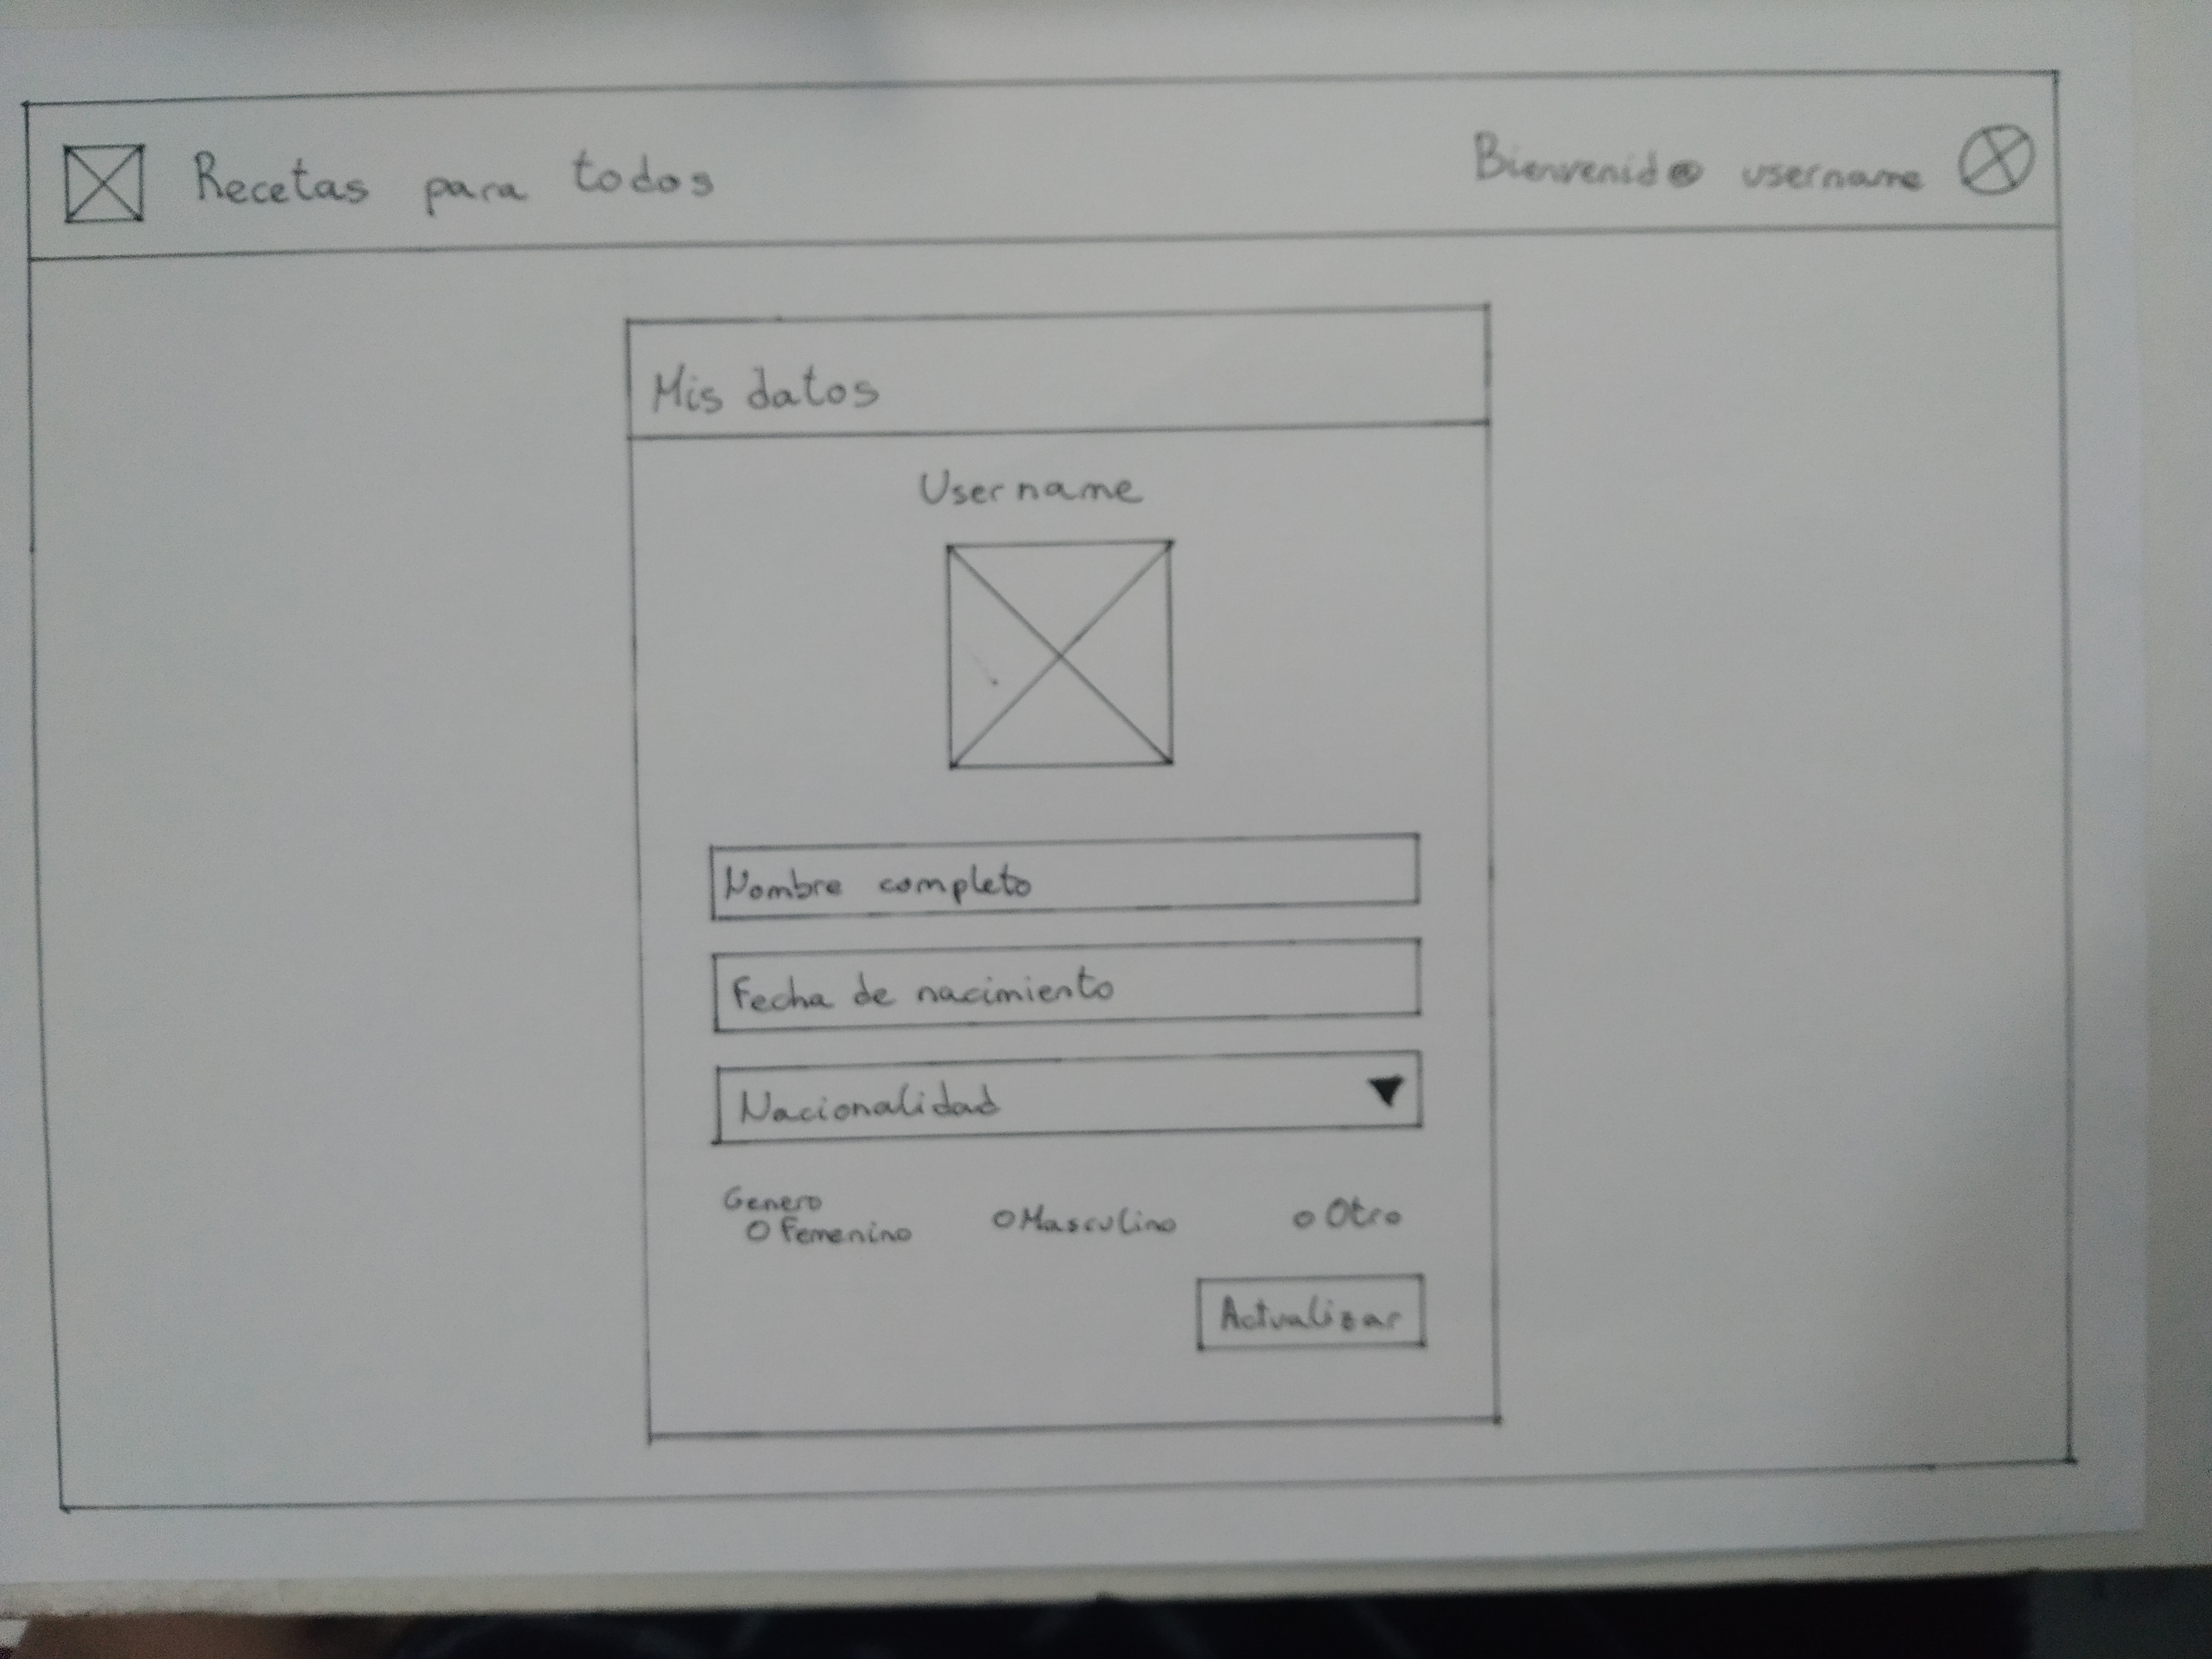 Recetas para todos
Bienvenid@ username
Mis datos
Username
Nombre completo
Fecha de nacimiento
Nacionalidad
Genero
Femenino Masculino Otro
Actualizar